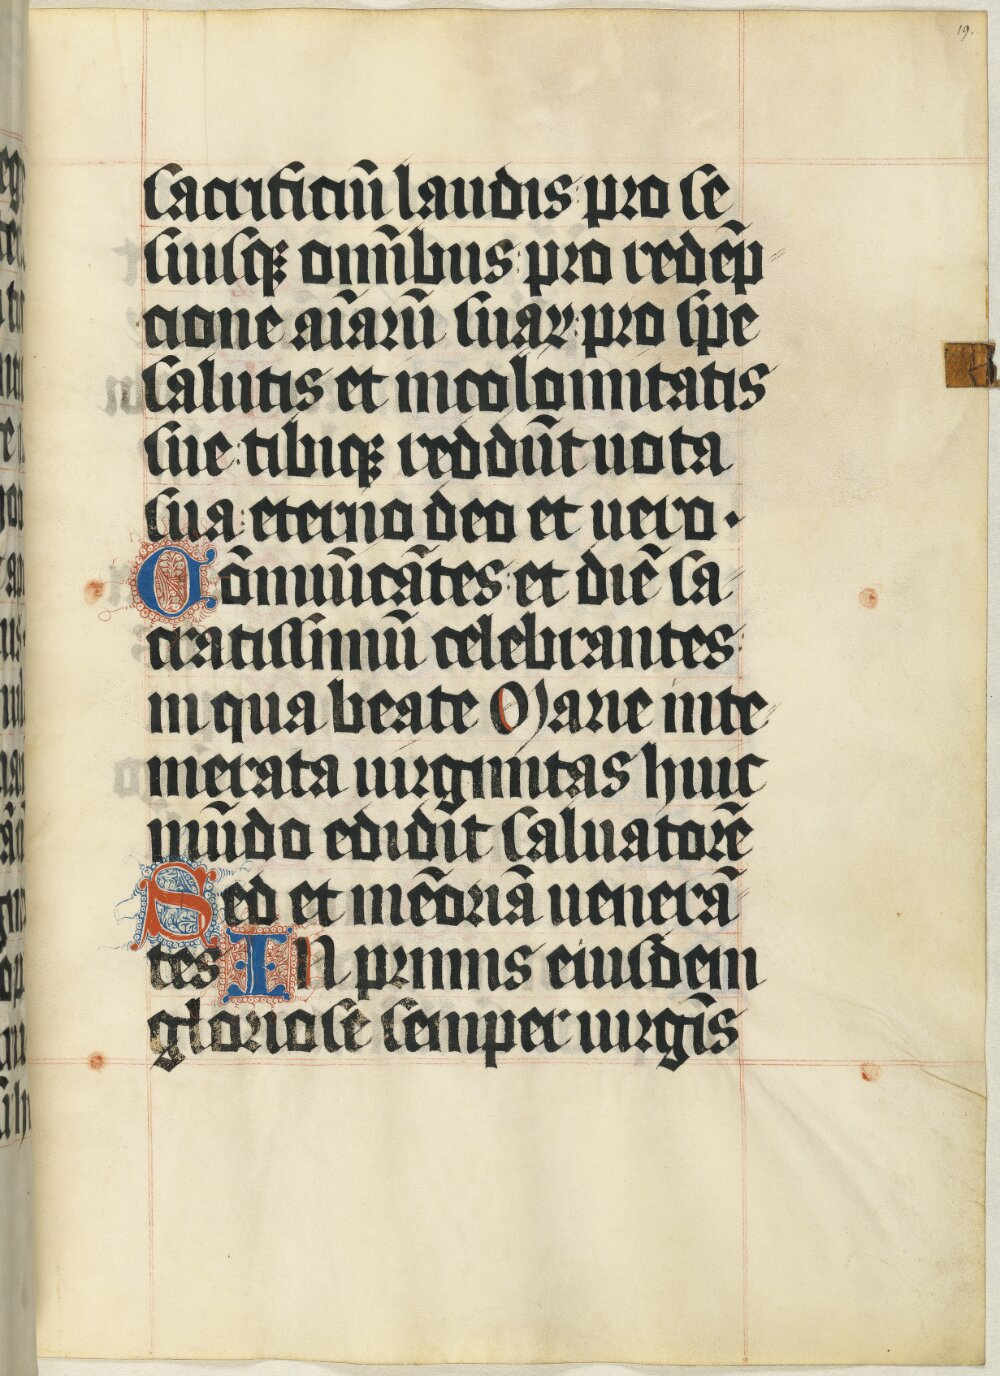 19.
sacrificiū laudis pro se
suisqꝫ om̄ibus pro redēp
cione aīarū suaꝝ pro spe
salutis et incolomitatis
sue tibiqꝫ reddūt uota
sua eterno deo et uero.
Cōmūicātes et diē sa
cratissimū celebrantes
in qua beate Marie inte
merata uirginitas huic
mūdo edidit saluatorē
Sed et mēoriā uenerā
tes In primis eiusdem
gloriose semper uirgīs